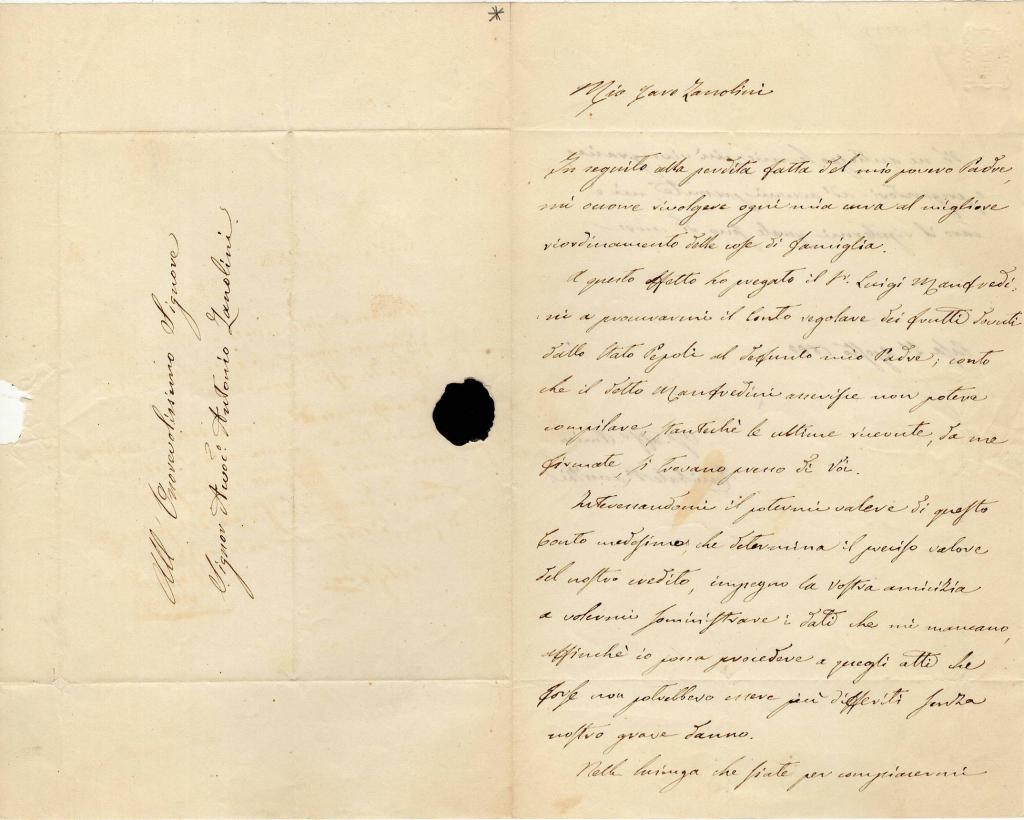 All' Onorevolissimo Signore
Signor Avvoc.º Antonio Zanolini
Mio Caro Zanolini
In seguito alla perdita fatta del mio povero Padre,
mi occorre rivolgere ogni mia cura al migliore
riordinamento delle cose di famiglia.
A questo effetto ho pregato il Sr. Luigi Manfredi=
=ni a procurarmi il Conto regolare dei frutti dovuti
dallo Stato Pepoli al defunto mio Padre; conto
che il detto Manfredini asserisce non potere
compilare, stantechè le ultime ricevute, da me
firmate, si trovano presso di Voi.
Interessandomi il potermi valere di questo
Conto medesimo, che determina il preciso valore
del nostro credito, impegno la vostra amicizia
a volermi somministrare i dati che mi mancano,
affinchè io possa procedere a quegli atti che
forse non potrebbero essere più differiti senza
nostro grave danno.
Nella lusinga che siate per compiacermi